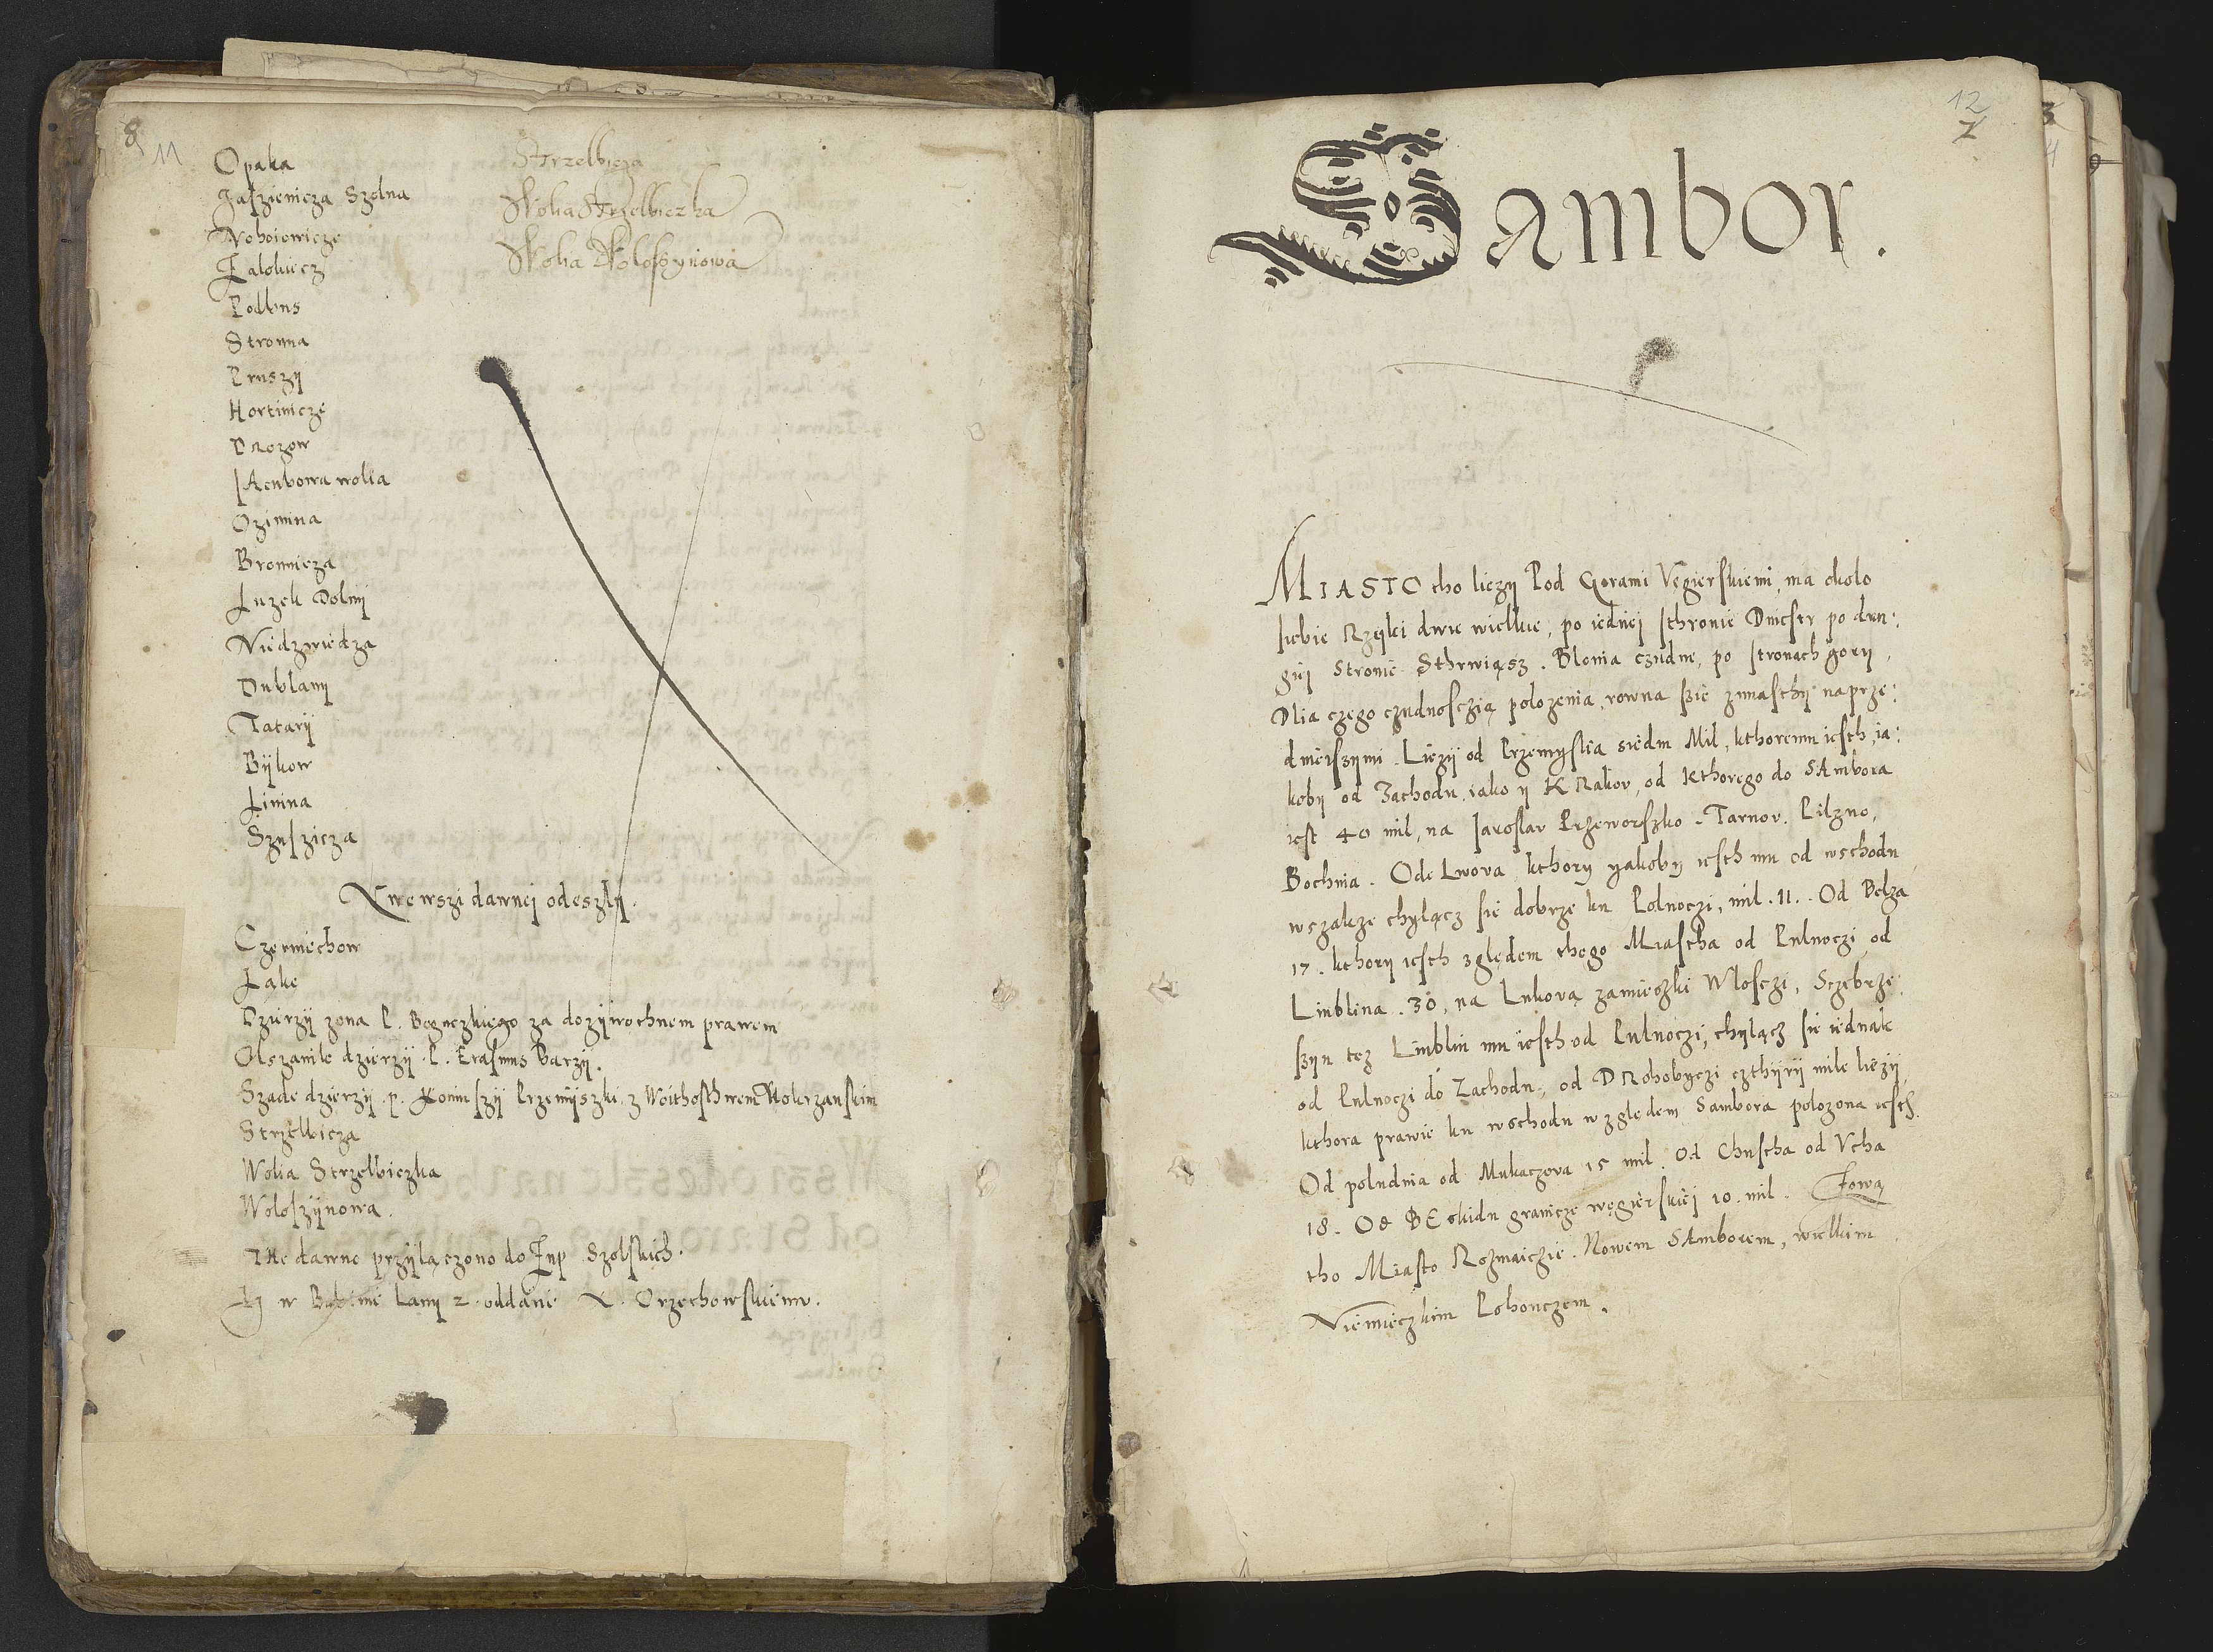 8
11
Opaka
Jaszienicza Szolna
Nohoiowicze
Zalokiecz
Podbus
Stronna
Pruszÿ
Hortinicze
DRozow
sAenbowa wolia
Ozimina
Bronnicza
Luzek Dolnÿ
Niedzwiedza
Dublanÿ
Tatarÿ
Bÿkow
Linina
Szuszicza
Strzelbicza
Wolia Strzelbiczka
Wolia Woloszynowa
we wszi dawnej odeszlÿ.
Czerniechow
Łąke
Dzierzÿ zona P. Boguczkiego za dozÿwothnem prawem
Olszanike dzierzÿ P. Erasmus Barzÿ.
Szade dzierzÿ p. Koniuszÿ Przemÿszki z Woithosthwem Wokrzanskim
Strzelbicza
Wolia Strzelbiczka
Woloszÿnowa.
The dawno przÿlączono do Zup Szolskich.
w lanÿ 2 oddanie X. Orzechowskiemu.
12
7
Sambor.
MIASTO tho liezÿ Pod Gorami Vęgierskiemi, ma okolo
siebie Rzeki dwie wielkie, po iednej sthronie Dniestr po dru:
giej Stronie Sthrwiąsz. Blonia czudne, po stronach gorÿ,
Dlia czego czudnosczią polozenia rowna szie zmiasthÿ naprze:
dnieiszymi. Liezÿ od Przemyslia siedm Mil, kthoremu iesth, ia:
kobÿ od Zachodu, iako y KRakov, od Kthorego do SAmbora
iest 40 mil, na Jaroslav Przeworszko. Tarnov. Pilzno,
Bochnia. Ode Lwova kthory yakoby iesth mu od wschodu
wszakze chylącz sie dobrze ku Polnoczi, mil. 11.. Od Belza
17. kthorÿ iesth zględem thego Miastha od Pulnoczi, od
Liublina. 30, na Lukovą zamieszki Wlosczi, Sczebrze:
szyn tez Liublin mu iesth od Pulnoczi, chyląsz sie iednak
od Pulnoczi do Zachodu, od DRohobyczi czthÿrÿ mile liezÿ,
kthora prawie ku wschodu wzgledem Sambora polozona iesth.
Od poludnia od Mukaczova 15 mil. Od Chustha od Vcha
18. Od BEskidu granicze węgierskiej 10. mil. Zową
tho Miasto Rozmaiczie. Nowem SAmborem, wielkim
Niemieczkim Pohonczem.